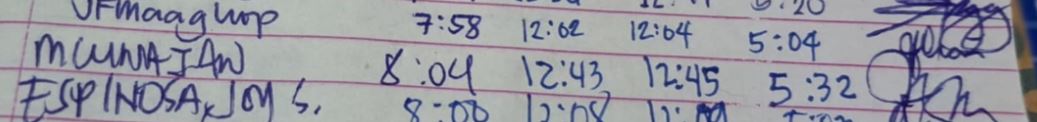 VFmaaghop 7:58 12:02 12:04 5:04
MCUNAJAN 8:04 12:43 12:45 5:32
ESPINOSA, JOY S. 8:00 12:08